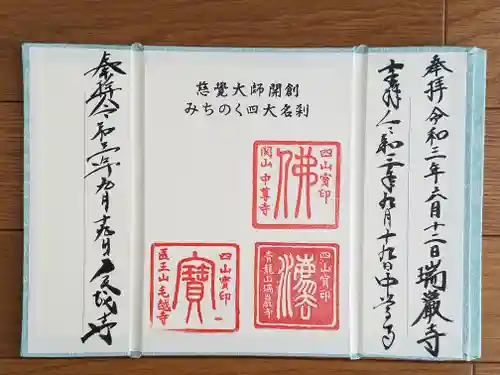 奉拝 令和三年六月十二日 瑞巌寺
奉拝 令和三年九月十九日 中尊寺
慈覺大師開創
みちのく四大名刹
四山寳印
佛
関山 中尊寺
四山寳印
青龍山瑞巖寺
四山寳印
寳
医王山 毛越寺
奉拝 令和三年九月十九日 毛越寺